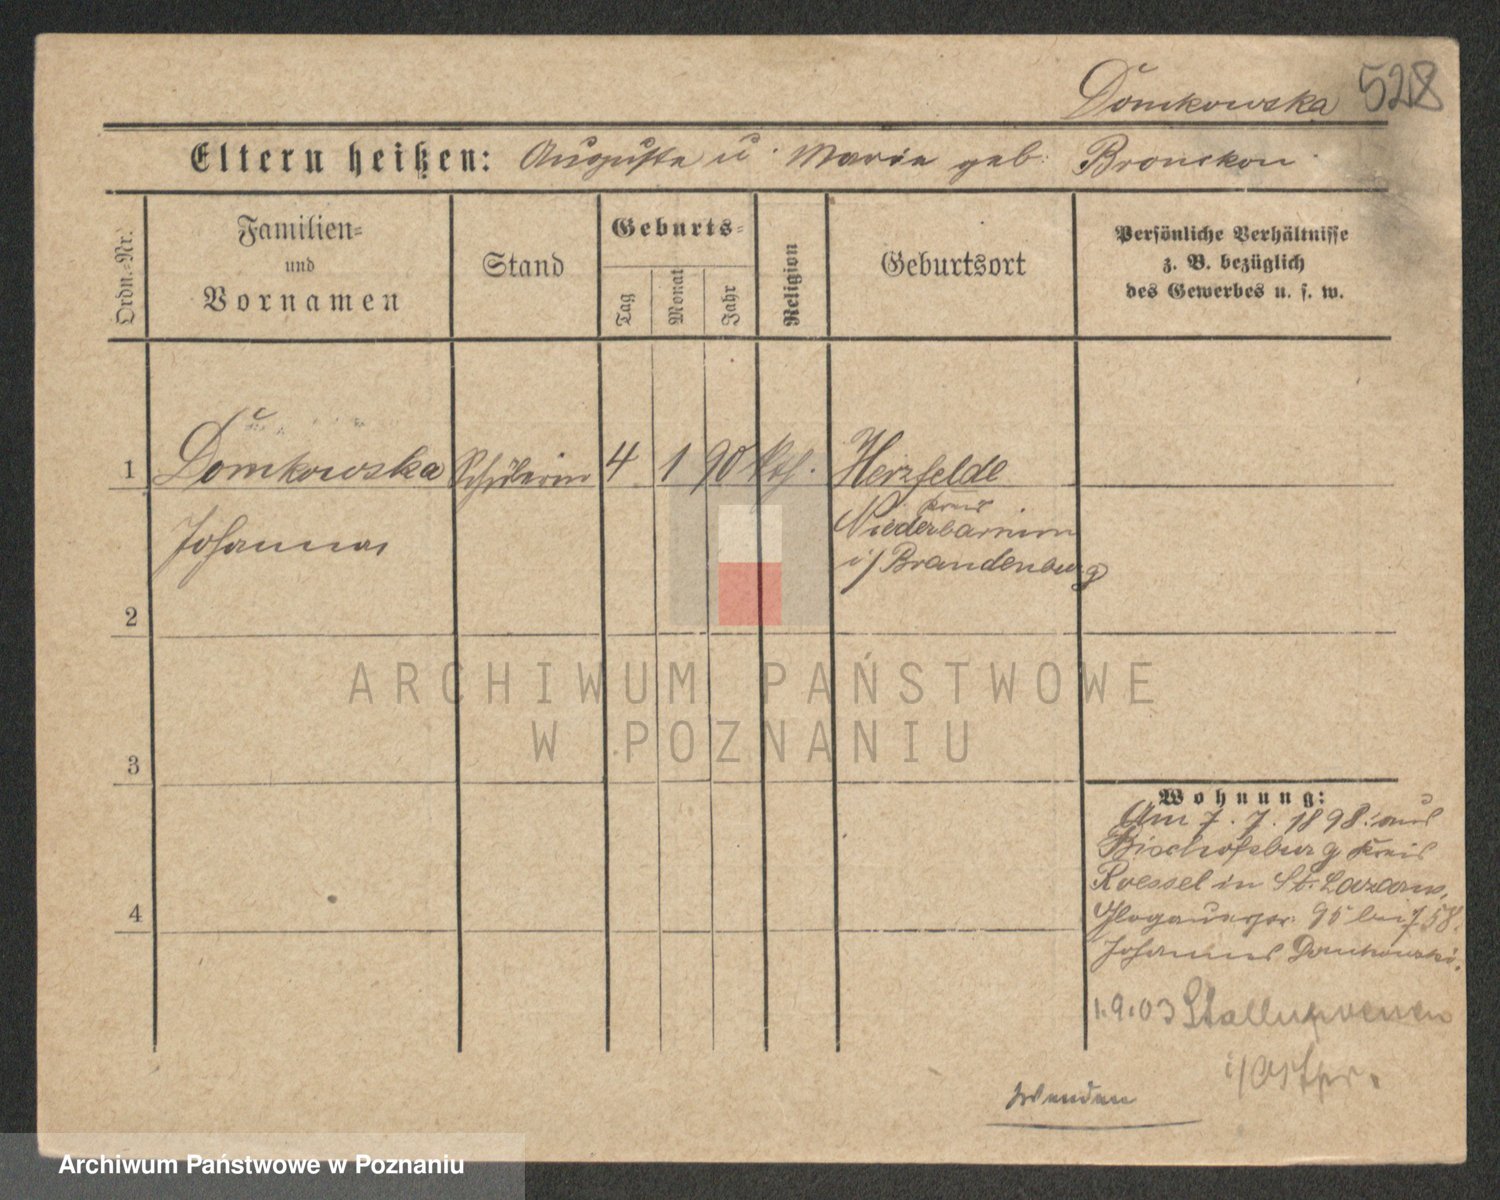 Domkowska 528
Eltern heißen: Auguste u. Marie geb. Bronckon
Ordn.-Nr.
Familien-
und
Vornamen
Stand
Geburts-
Tag
Monat
Jahr
Religion
Geburtsort
Persönliche Verhältnisse
z. B. bezüglich
des Gewerbes u. s. w.
1 Domkowska Schülerin 4 1 90 kth. Herzfelde
Kreis
Johanna Niederbarnim
i/ Brandenburg
2
ARCHIWUM PAŃSTWOWE
W POZNANIU
3
Wohnung:
Am 7. 7. 1898 aus
Bischofsburg Kreis
Roessel in St. Lazarus,
Glogauerstr. 95 bei
4
Domkowski.
1.9.03 Stallupoenen
i/Ostpr.
Wenden
Archiwum Państwowe w Poznaniu